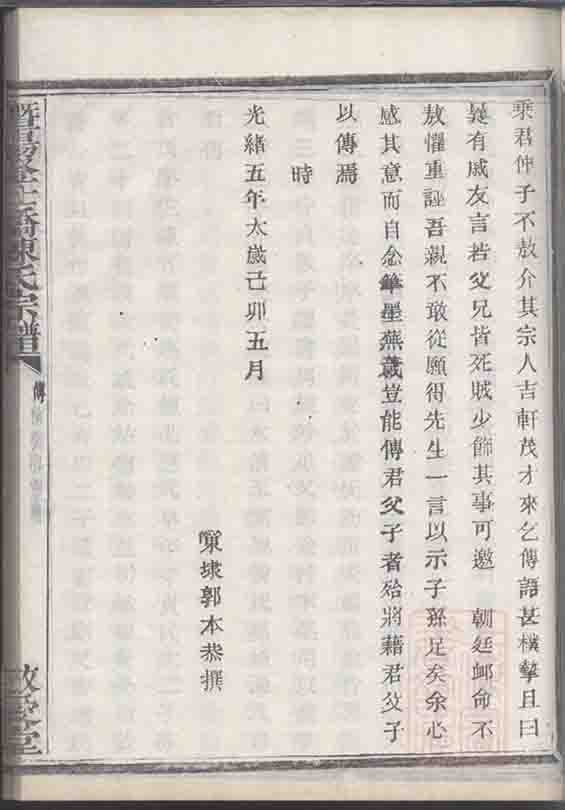 乘君仲子不敖介其宗人吉軒茂才來乞傳語甚樸摯且曰
曩有戚友言若父兄皆死賊少飾其事可邀　朝廷卹命不
敖懼重誣吾親不敢從願得先生一言以示子孫足矣余心
感其意而自念筆墨蕪薉豈能傳君父子者殆將藉君父子
以傳焉
時
光緒五年太歲己卯五月
東埭郭本恭撰
橋陳氏宗譜
傳